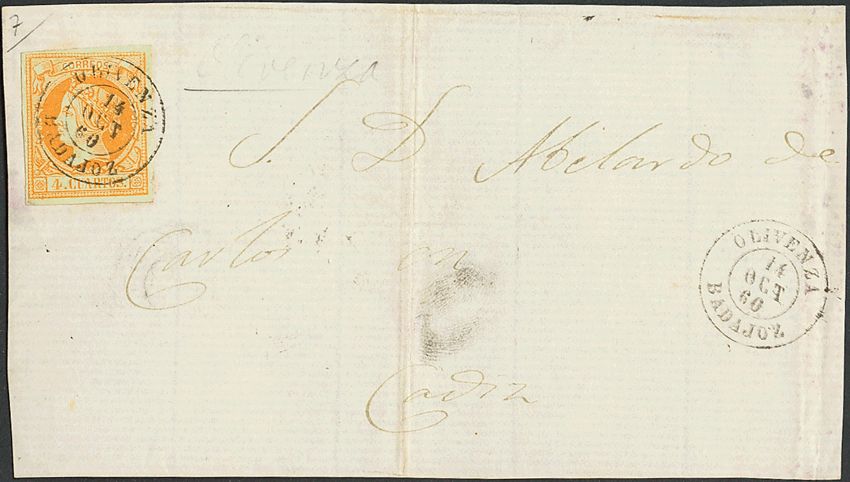 7
CORREOS
4. CUARTOS.
OLIVENZA
14
OCT
60
BADAJOZ
Olivenza
S. D Abelardo de
Carlos en
Cadiz
OLIVENZA
14
OCT
60
BADAJOZ